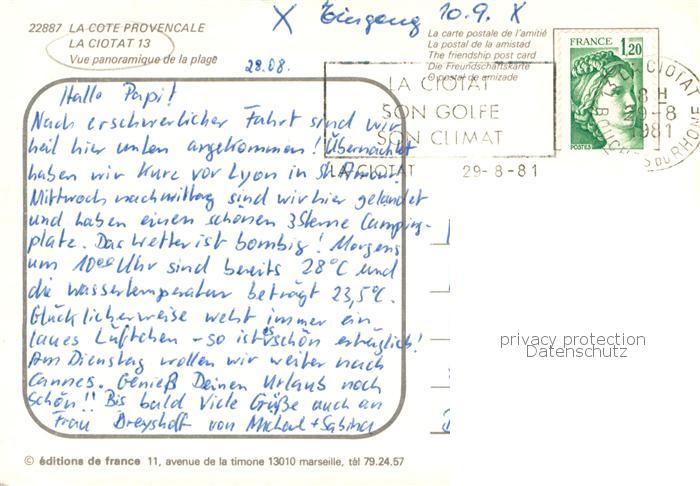 X Eingang 10.9. X
22887 LA COTE PROVENCALE
LA CIOTAT 13
Vue panoramique de la plage
La carte postale de l'amitié
La postal de la amistad
The friendship post card
Die Freundschaftskarte
O postal de amizade
FRANCE
1,20
POSTES
LA CIOTAT
8 H
29-8
1981
BOUCHES DU RHONE
LA CIOTAT
SON GOLFE
SON CLIMAT
LA CIOTAT 29-8-81
28.08.
Hallo Papi!
Nach erschwerlicher Fahrt sind wir
heil hier unten angekommen! Übernachtet
haben wir kurz vor Lyon in St. Amour.
Mittwoch nachmittag sind wir hier gelandet
und haben einen schönen 3 Sterne Camping-
platz. Das Wetter ist bombig! Morgens
um 10⁰⁰ Uhr sind bereits 28°C und
die Wassertemperatur beträgt 23,5°C.
Glücklicherweise weht immer ein
laues Lüftchen - so ist es schön erträglich!
Am Dienstag wollen wir weiter nach
Cannes. Genieß Deinen Urlaub noch
schön!! Bis bald Viele Grüße auch an
Frau von Michael + Sabina
privacy protection
Datenschutz
© éditions de france 11, avenue de la timone 13010 marseille, tél 79.24.57